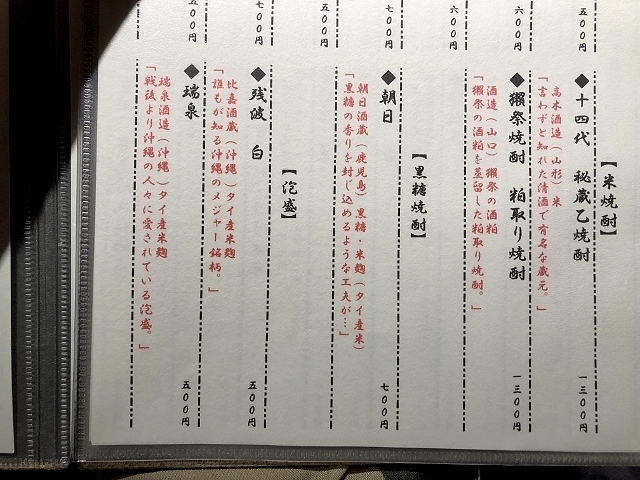 五〇〇円
【米焼酎】
◆十四代 秘蔵乙焼酎
一三〇〇円
高木酒造（山形）米
「言わずと知れた清酒で有名な蔵元。」
六〇〇円
◆獺祭焼酎 粕取り焼酎
一三〇〇円
酒造（山口）獺祭の酒粕
「獺祭の酒粕を蒸留した粕取り焼酎。」
六〇〇円
【黒糖焼酎】
七〇〇円
◆朝日
七〇〇円
朝日酒蔵（鹿児島）黒糖・米麹（タイ産米）
「黒糖の香りを封じ込めるような工夫が…」
五〇〇円
【泡盛】
七〇〇円
◆残波 白
五〇〇円
比嘉酒蔵（沖縄）タイ産米麹
「誰もが知る沖縄のメジャー銘柄。」
五〇〇円
◆瑞泉
五〇〇円
瑞泉酒造（沖縄）タイ産米麹
「戦後より沖縄の人々に愛されている泡盛。」